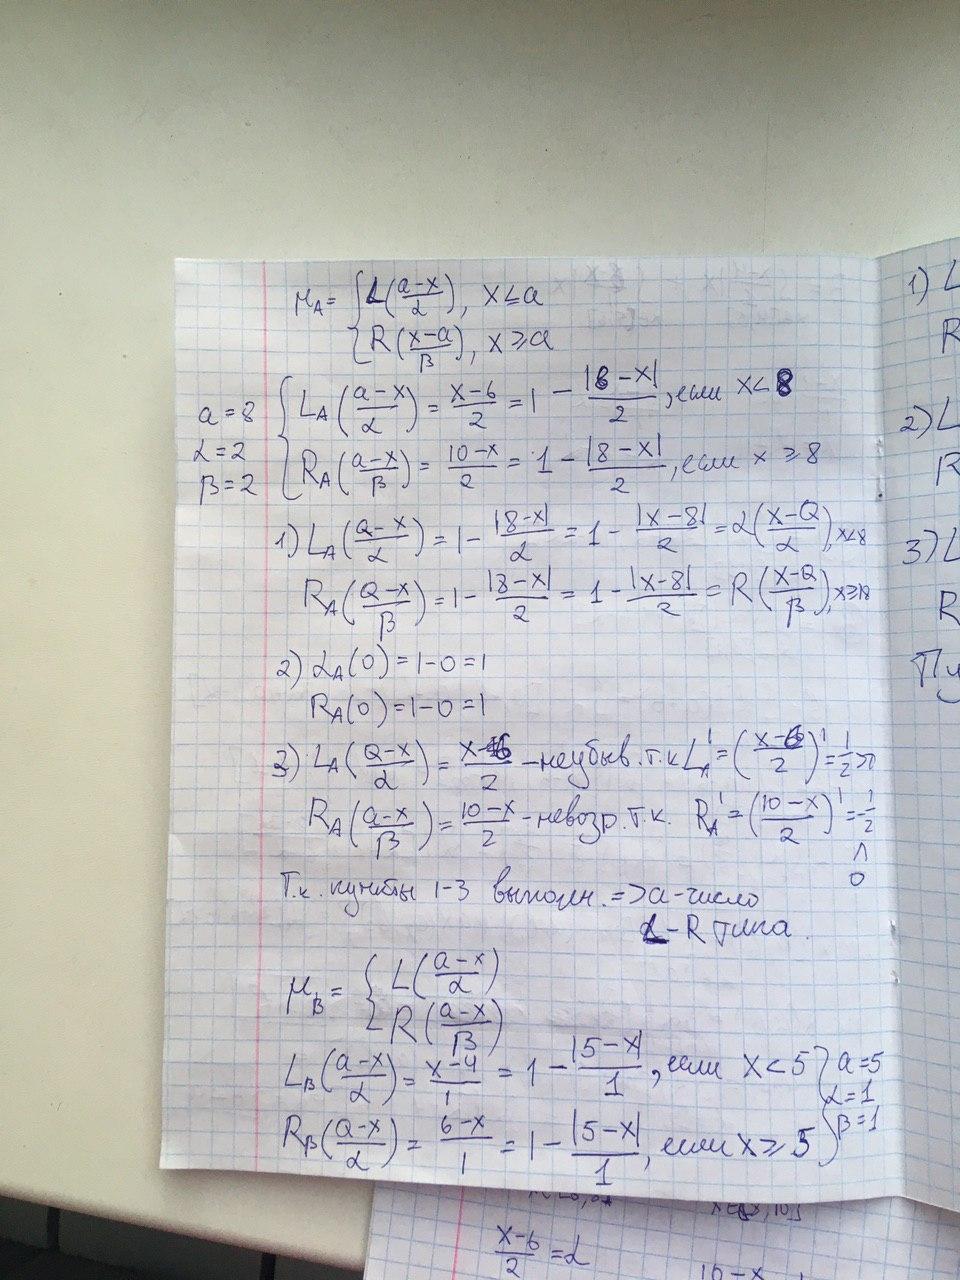 μ_A = { L((a-x)/α), x ≤ a
R((x-a)/β), x ≥ a
a=8
α=2
β=2
{ L_A((a-x)/α) = (x-6)/2 = 1 - |8-x|/2, если x<8
R_A((a-x)/β) = (10-x)/2 = 1 - |8-x|/2, если x ≥ 8
1) L_A((a-x)/α) = 1 - |8-x|/2 = 1 - |x-8|/2 = L((x-a)/α), x<8
R_A((a-x)/β) = 1 - |8-x|/2 = 1 - |x-8|/2 = R((x-a)/β), x≥8
2) L_A(0) = 1-0 = 1
R_A(0) = 1-0 = 1
3) L_A((a-x)/α) = (x-6)/2 - неубыв. т.к L_A' = ((x-6)/2)' = 1/2 >0
R_A((a-x)/β) = (10-x)/2 - невозр. т.к. R_A' = ((10-x)/2)' = -1/2
^
0
Т.к. пункты 1-3 выполн. => a-число
L-R типа.
μ_B = { L((a-x)/α)
R((a-x)/β)
L_B((a-x)/α) = (x-4)/1 = 1 - |5-x|/1, если x<5
R_B((a-x)/α) = (6-x)/1 = 1 - |5-x|/1, если x ≥ 5
} a=5
α=1
β=1
1) L
R
2) L
R
3) L
R
(x-6)/2 = α